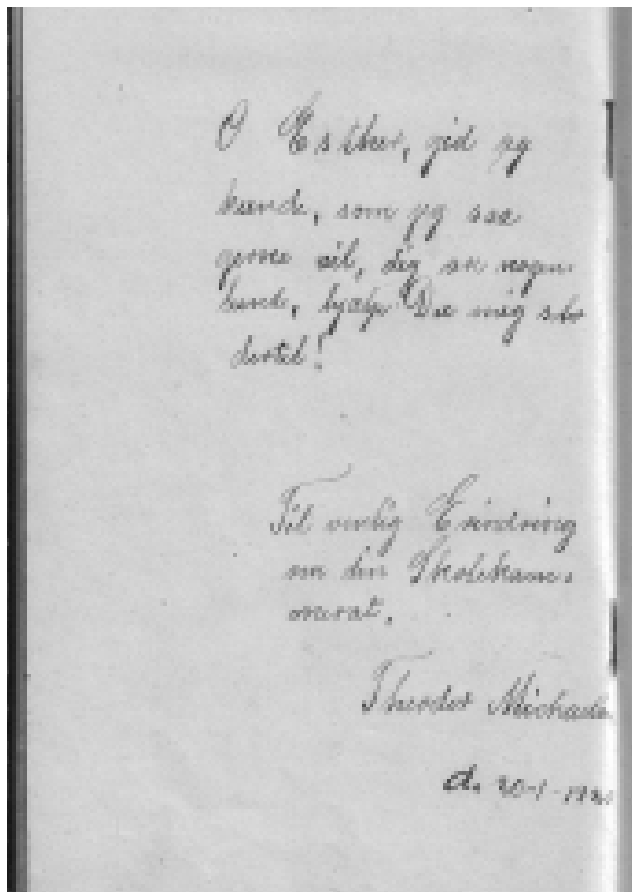 O Esther, gid jeg
kunde, som jeg saa
gerne vil, dig en
kund, hjælp Du mig
dertil!
Til venlig Erindring
om din Skolekam-
merat.
Theodor
d. 20-1-19